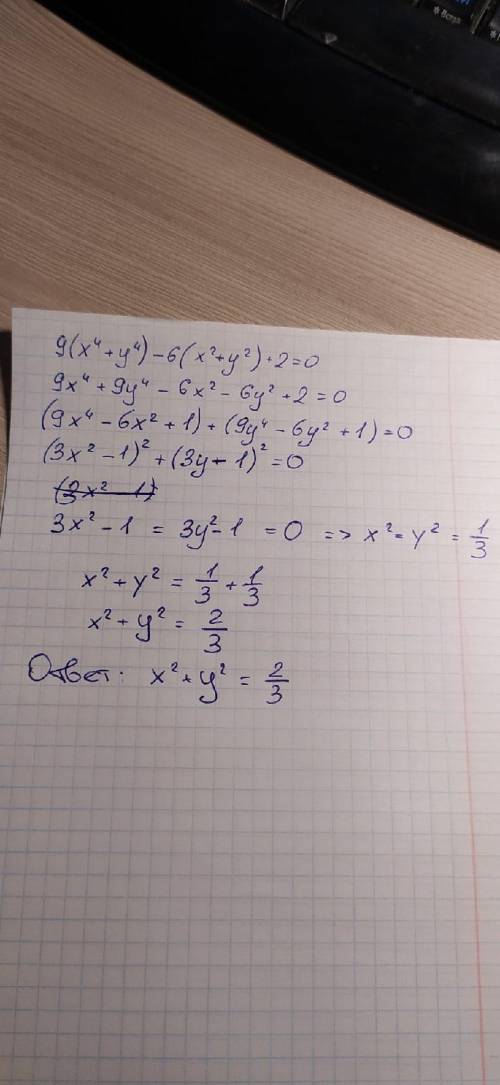 * Вставка
9(x⁴+y⁴)-6(x²+y²)+2=0
9x⁴+9y⁴-6x²-6y²+2=0
(9x⁴-6x²+1)+(9y⁴-6y²+1)=0
(3x²-1)²+(3y-1)²=0
(3x²-1)
3x²-1=3y²-1=0 => x²=y²=1/3
x²+y²=1/3+1/3
x²+y²=2/3
Ответ: x²+y²=2/3